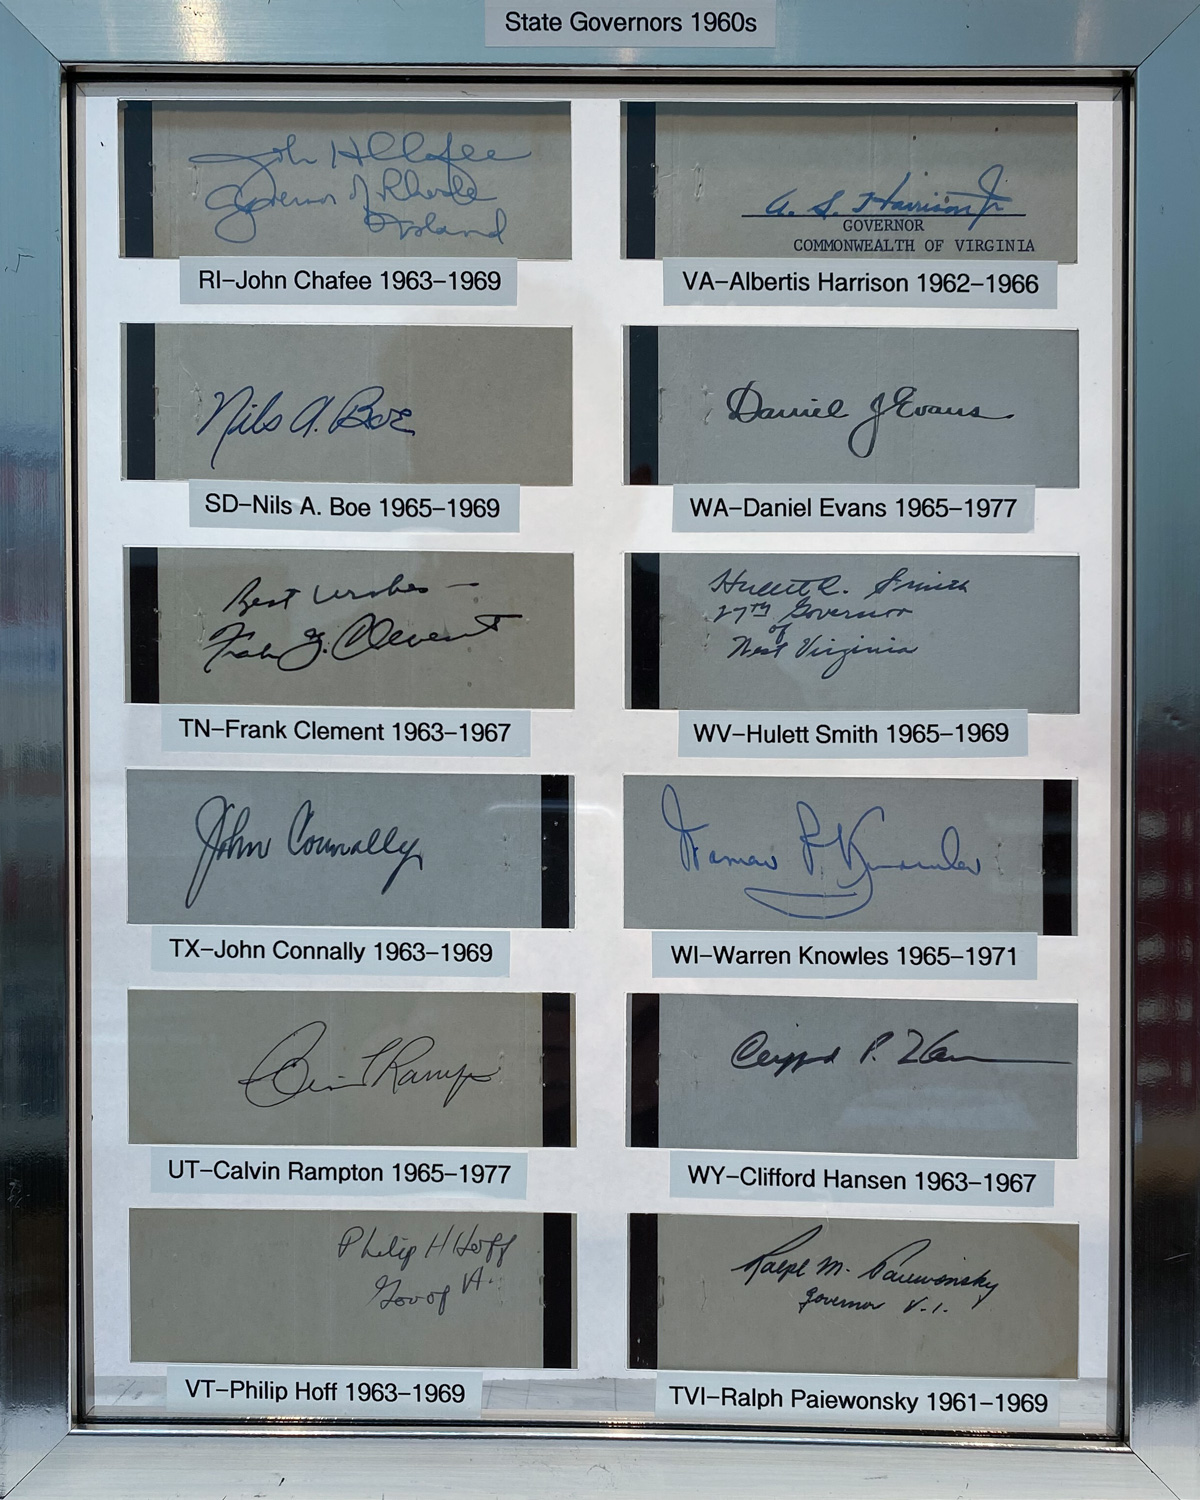 State Governors 1960s
John H Chafee
Governor of Rhode
Island
RI–John Chafee 1963–1969
A. S. Harrison Jr
GOVERNOR
COMMONWEALTH OF VIRGINIA
VA–Albertis Harrison 1962–1966
Nils A. Boe
SD–Nils A. Boe 1965–1969
Daniel J Evans
WA–Daniel Evans 1965–1977
Best Wishes –
Frank G. Clement
TN–Frank Clement 1963–1967
Hulett C. Smith
27TH Governor
of
West Virginia
WV–Hulett Smith 1965–1969
John Connally
TX–John Connally 1963–1969
Warren P Knowles
WI–Warren Knowles 1965–1971
Calvin L Rampton
UT–Calvin Rampton 1965–1977
Clifford P. Hansen
WY–Clifford Hansen 1963–1967
Philip H Hoff
Gov of Vt.
VT–Philip Hoff 1963–1969
Ralph M. Paiewonsky
Governor V.I.
TVI–Ralph Paiewonsky 1961–1969